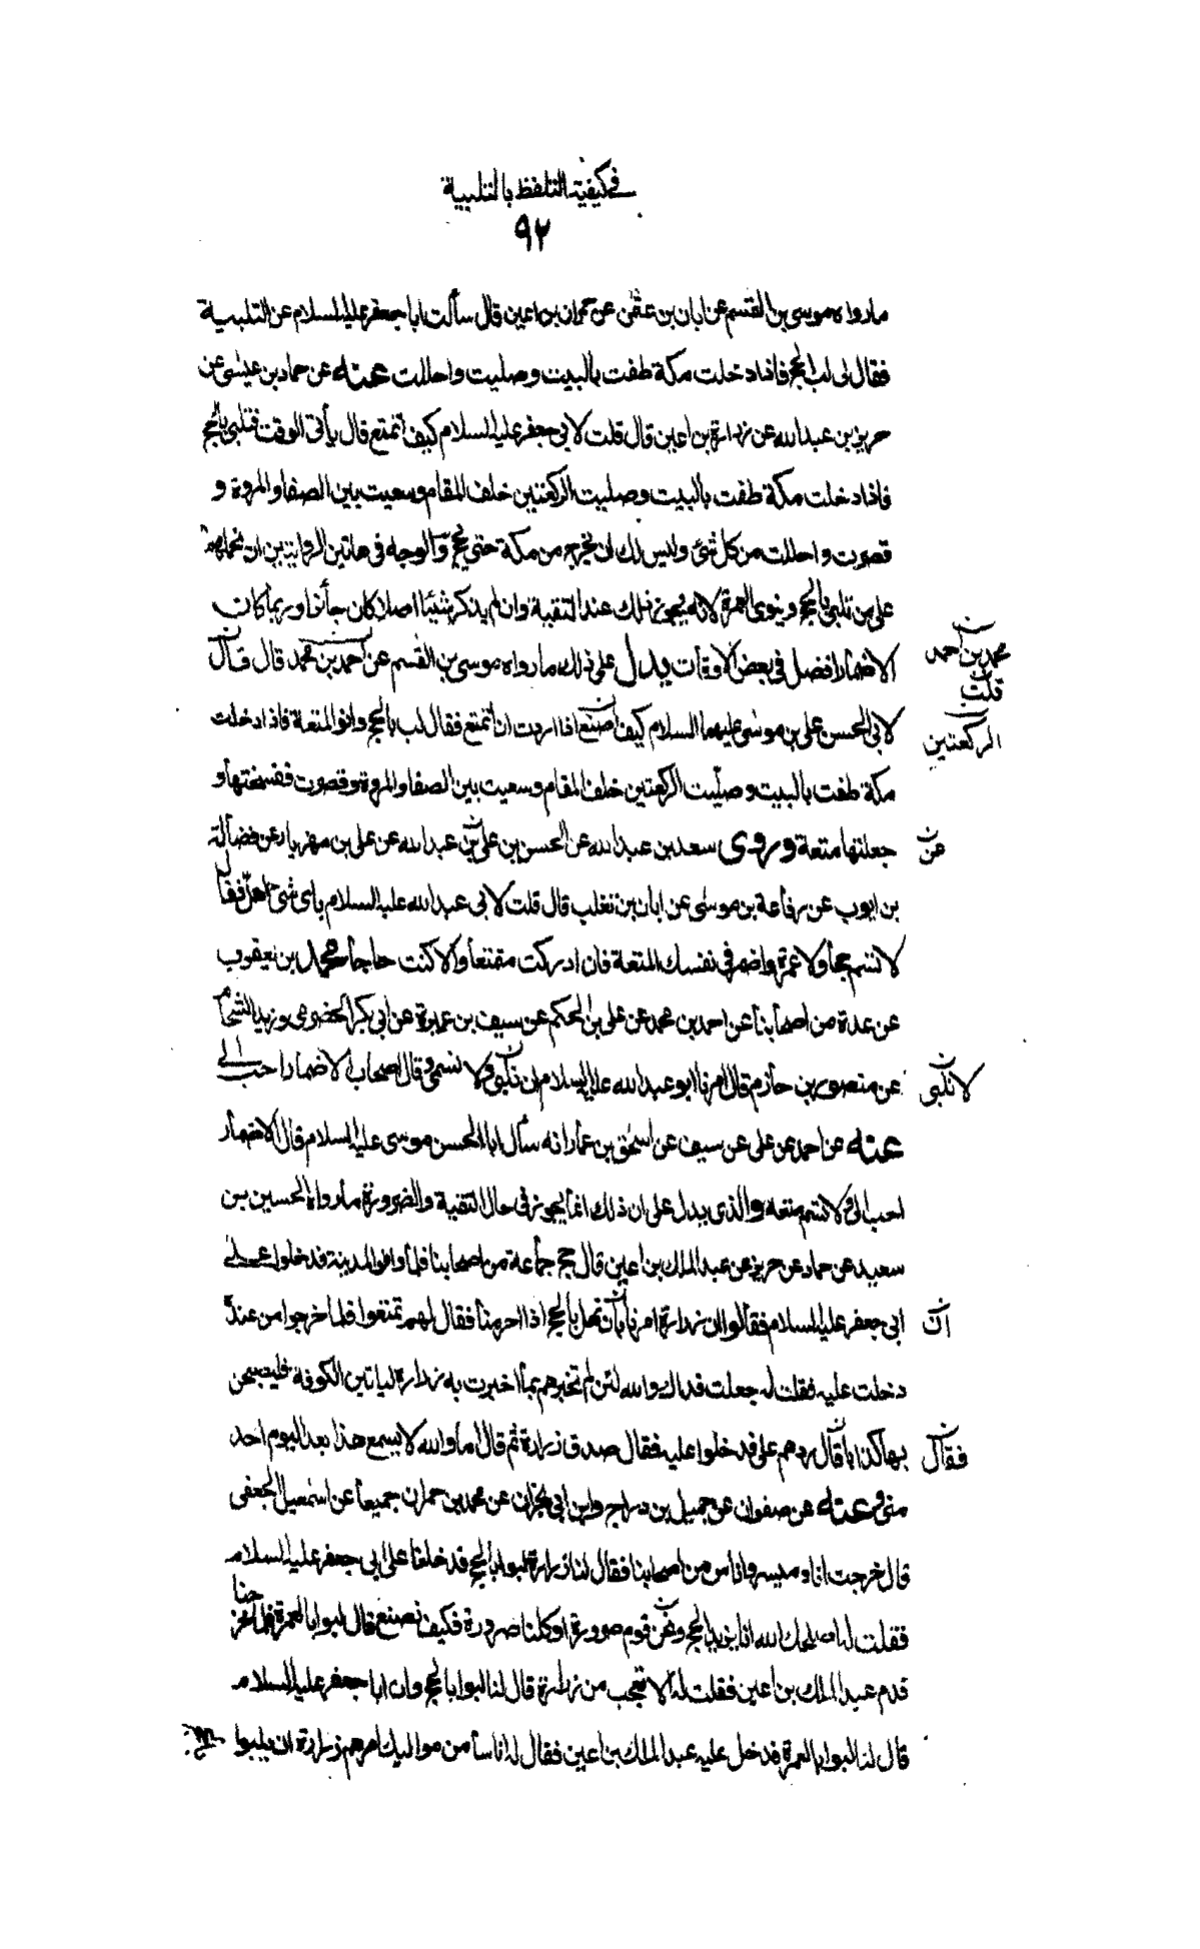 في كيفية التلفظ بالتلبية
٩٢
ما رواه موسى بن القسم عن ابان بن عثمن عن حمران بن اعين قال سألت ابا جعفر عليه السلام عن التلبية
فقال لى لب بالحج فاذا دخلت مكة طفت بالبيت وصليت واحللت عنه عن حماد بن عيسى عن
حريز بن عبد الله عن زرارة بن اعين قال قلت لابي جعفر عليه السلام كيف اتمتع قال يأتى الوقت فتلبي بالحج
فاذا دخلت مكة طفت بالبيت وصليت الركعتين خلف المقام وسعيت بين الصفا والمروة و
قصرت واحللت من كل شئ وليس لك ان تخرج من مكة حتى تحج والوجه في هاتين الروايتين ان نحملهما
على من تلبى بالحج وينوى العمرة لانه يجوز ذلك عند التقية وان لم يذكر شيئا اصلا كان جائزا وربما كان
الاضمار افضل في بعض الاوقات يدل على ذلك ما رواه موسى بن القسم عن احمد بن محمد قال قال
محمد بن احمد
قلت
لابي الحسن على بن موسى عليهما السلام كيف اصنع اذا اردت ان اتمتع فقال لب بالحج وانو المتعة فاذا دخلت
الركعتين
مكة طفت بالبيت وصليت الركعتين خلف المقام وسعيت بين الصفا والمروة وقصرت ففسختها و
جعلتها متعة وروى سعد بن عبد الله عن الحسن بن على بن عبد الله عن على بن مهزيار عن فضالة
عن
بن ايوب عن رفاعة بن موسى عن ابان بن تغلب قال قلت لابي عبد الله عليه السلام باى شئ اهل فقال
لا تسم حجا ولا عمرة واضمر في نفسك المتعة فان ادركت متمتعا والا كنت حاجا محمد بن يعقوب
عن عدة من اصحابنا عن احمد بن محمد عن على بن الحكم عن سيف بن عميرة عن ابي بكر الحضرمى وزيد الشحام
عن منصور بن حازم قال امرنا ابو عبد الله عليه السلام ان نلبي ولا نسمى وقال اصحاب الاضمار احب الى
لا نلبي
عنه عن احمد عن على عن سيف عن اسحق بن عمار انه سأل ابا الحسن موسى عليه السلام قال الاضمار
احب الى ولا تسم متعه والذى يدل على ان ذلك انما يجوز في حال التقية والضرورة ما رواه الحسين بن
سعيد عن حماد عن حريز عن عبد الملك بن اعين قال حج جماعة من اصحابنا فلما وافوا المدينة فدخلوا على
ابي جعفر عليه السلام فقالوا ان زرارة امرنا بان نهل بالحج اذا احرمنا فقال لهم تمتعوا فلما خرجوا من عنده
ان
دخلت عليه فقلت له جعلت فداك والله لئن لم تخبرهم بما اخبرت به زرارة لياتين الكوفة فليصبحن
بها كذابا قال ردهم على فدخلوا عليه فقال صدق زرارة ثم قال اما والله لا يسمع هذا بعد اليوم احد
فقال
منى وعنه عن صفوان عن جميل بن دراج وابن ابي نجران عن محمد بن حمران جميعا عن اسمعيل الجعفي
قال خرجت انا وميسر واناس من اصحابنا فقال لنا زرارة لبوا بالحج فدخلنا على ابي جعفر عليه السلام
فقلت له اصلحك الله انا نريد الحج ونحن قوم صرورة او كلنا صرورة فكيف نصنع قال لبوا بالعمرة فلما خرجنا
قدم عبد الملك بن اعين فقلت له الا تعجب من زرارة قال لنا لبوا بالحج وان ابا جعفر عليه السلام
قال لنا لبوا بالعمرة فدخل عليه عبد الملك بن اعين فقال له اناسا من مواليك امرهم زرارة ان يلبوا